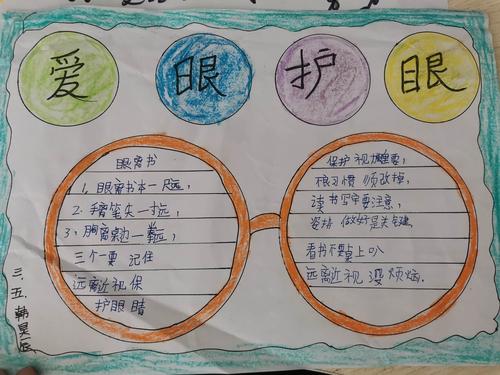 爱 眼 护 眼
眼离书
1. 眼离书本一尺远,
2. 手离笔尖一寸远,
3. 胸离桌边一拳远,
三个一要 记住
远离近视 保
护眼睛
保护视力很重要,
不良习惯 须改掉,
读书写字要注意,
姿势 做好是关键
看书不要桌上趴
远离近视 没烦恼.
三.五.韩